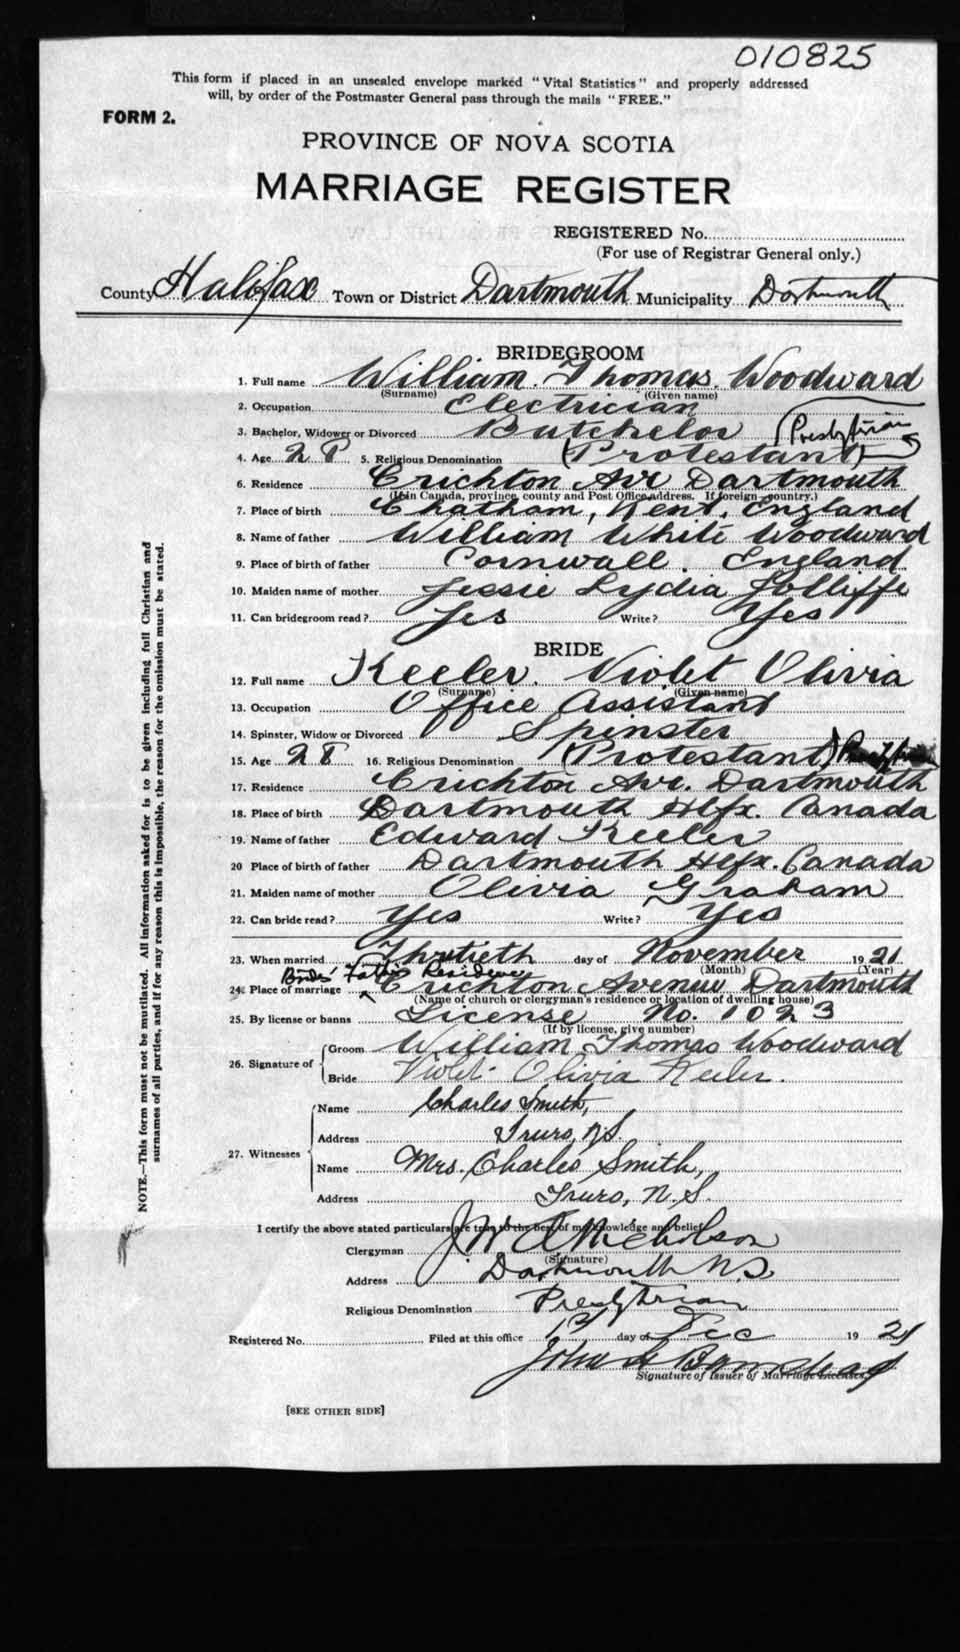 010825
This form if placed in an unsealed envelope marked "Vital Statistics" and properly addressed
will, by order of the Postmaster General pass through the mails "FREE."
FORM 2.
PROVINCE OF NOVA SCOTIA
MARRIAGE REGISTER
REGISTERED No.
(For use of Registrar General only.)
County Halifax Town or District Dartmouth Municipality Dartmouth
BRIDEGROOM
1. Full name William Thomas Woodward
(Surname) (Given name)
2. Occupation Electrician
3. Bachelor, Widower or Divorced Batchelor (Presbyterian
4. Age 28 5. Religious Denomination (Protestant)
6. Residence Crichton Ave Dartmouth
(If in Canada, province, county and Post Office address. If foreign country.)
7. Place of birth Chatham, Kent, England
8. Name of father William White Woodward
9. Place of birth of father Cornwall. England
10. Maiden name of mother Jessie Lydia Jolliffe
11. Can bridegroom read? Yes Write? Yes
BRIDE
12. Full name Keeler. Violet Olivia
(Surname) (Given name)
13. Occupation Office Assistant
14. Spinster, Widow or Divorced Spinster
15. Age 28 16. Religious Denomination (Protestant)
17. Residence Crichton Ave. Dartmouth
18. Place of birth Dartmouth Hfx. Canada
19. Name of father Edward Keeler
20 Place of birth of father Dartmouth Hfx. Canada
21. Maiden name of mother Olivia Graham
22. Can bride read? Yes Write? Yes
23. When married Thirtieth day of November 1921
(Month) (Year)
Brides' Father's Residence
24. Place of marriage Crichton Avenue Dartmouth
(Name of church or clergyman's residence or location of dwelling house)
25. By license or banns License No. 1023
(If by license, give number)
26. Signature of Groom William Thomas Woodward
Bride Violet Olivia Keeler.
27. Witnesses Name Charles Smith,
Address Truro, N.S.
Name Mrs. Charles Smith,
Address Truro, N.S.
I certify the above stated particulars are true to the best of my knowledge and belief
Clergyman J.W. A. Nicholson
(Signature)
Address Dartmouth N.S
Religious Denomination Presbyterian
Registered No. Filed at this office day of Dec 1921
Signature of Issuer of Marriage Licenses.
[SEE OTHER SIDE]
NOTE.—This form must not be mutilated. All information asked for is to be given including full Christian and
surnames of all parties, and if for any reason this is impossible, the reason for the omission must be stated.